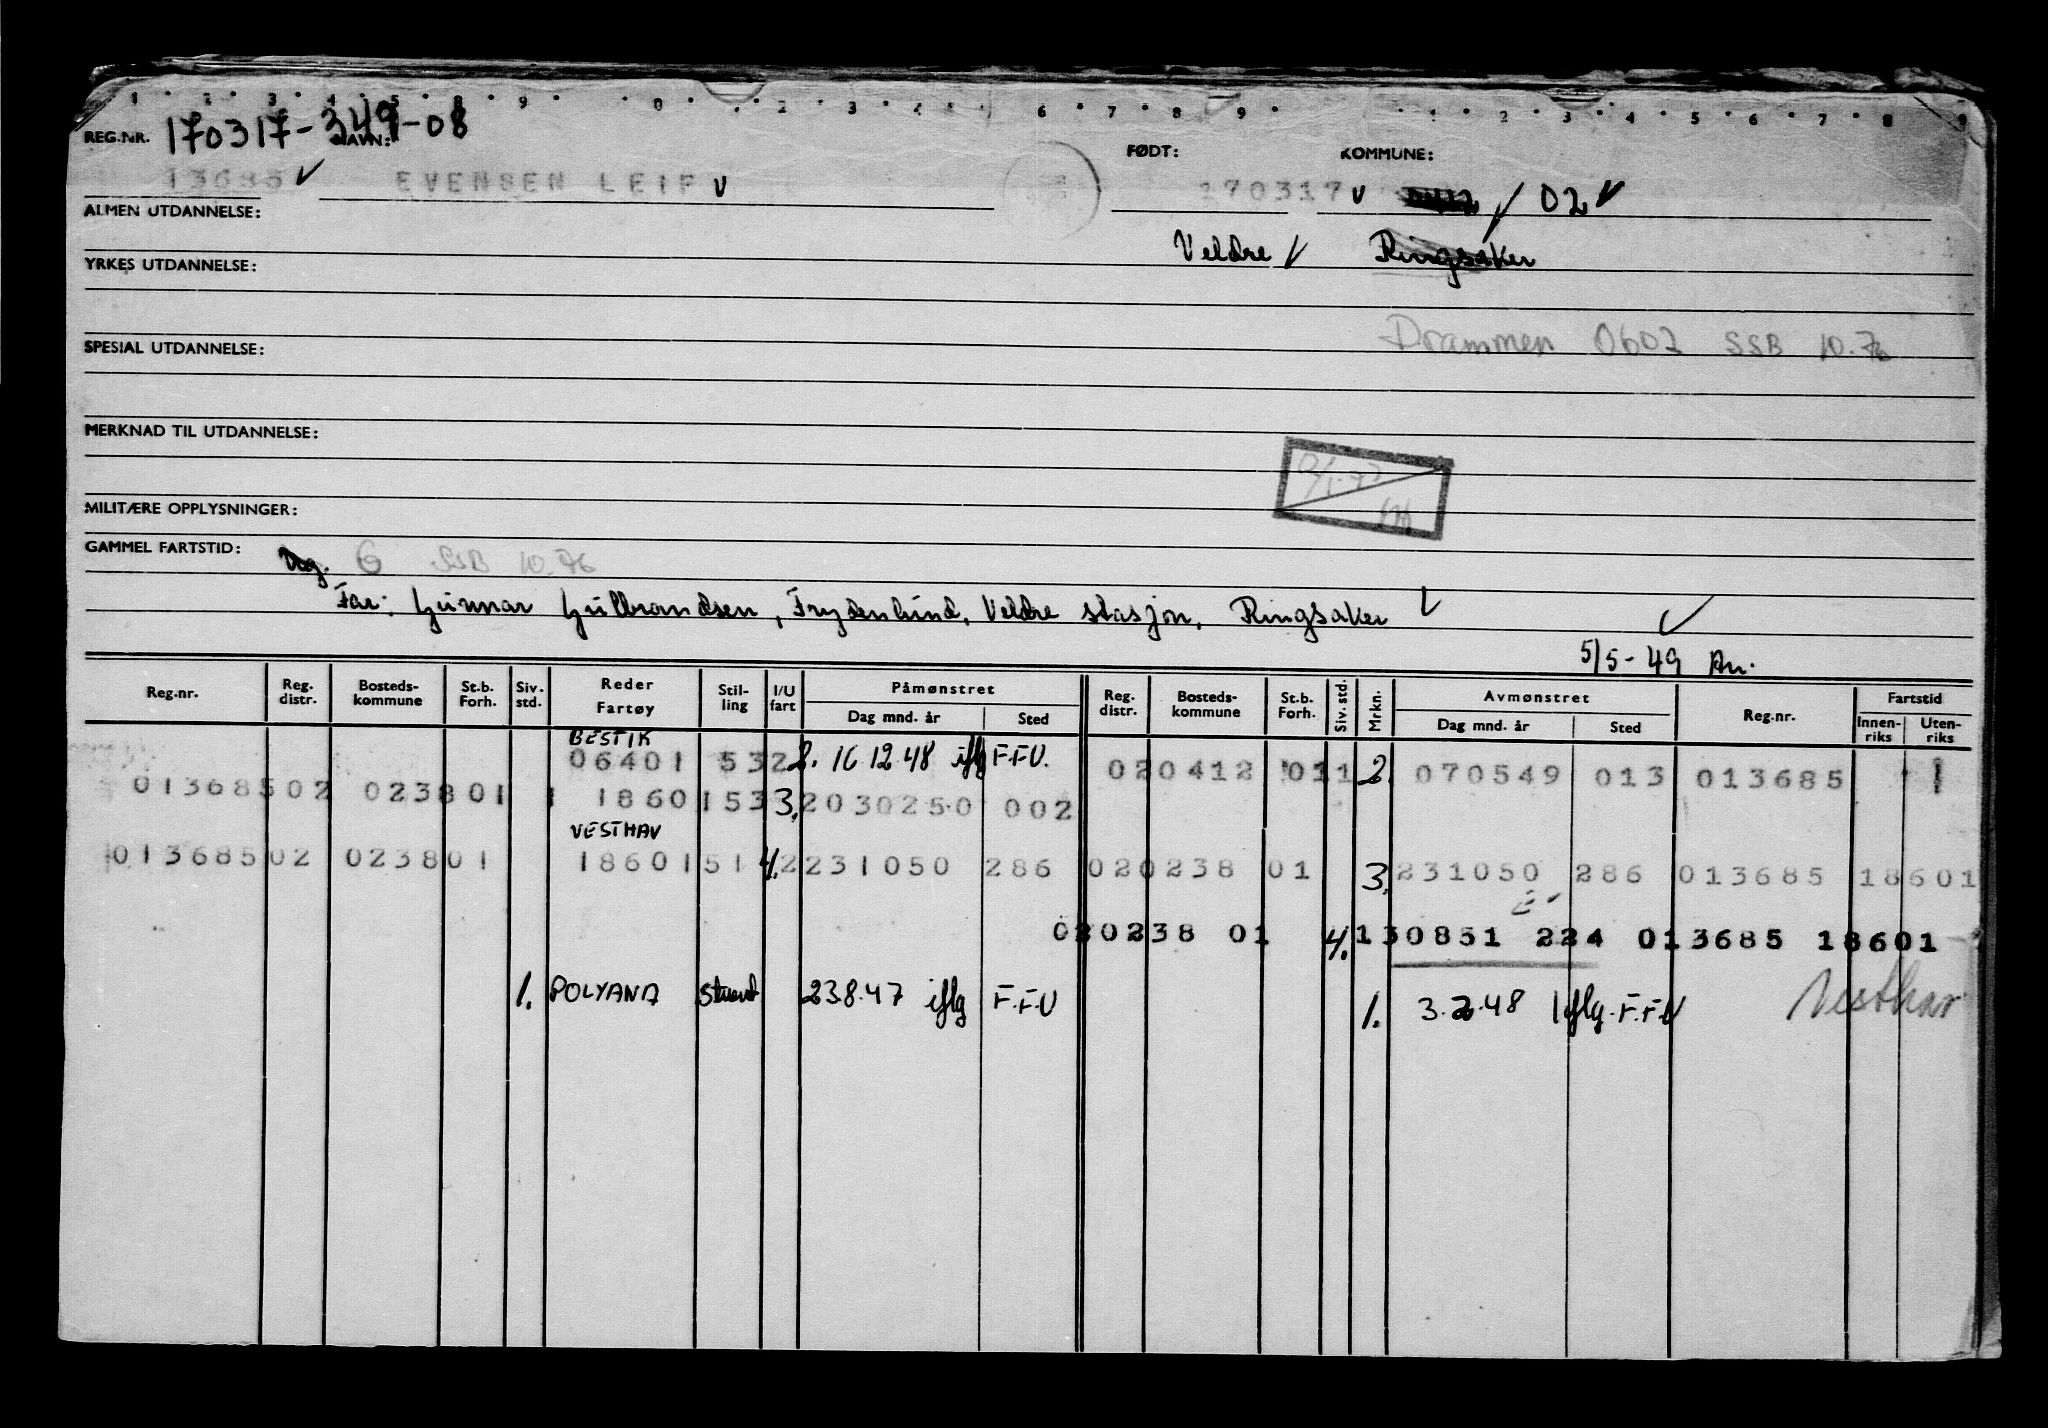 REG.NR. 170317-349-08 NAVN: FØDT: KOMMUNE:
13685 EVENSEN LEIF 170317 02
ALMEN UTDANNELSE:
Veldre Ringsaker
YRKES UTDANNELSE:
Drammen 0602 SSB 10.76
SPESIAL UTDANNELSE:
MERKNAD TIL UTDANNELSE:
MILITÆRE OPPLYSNINGER:
GAMMEL FARTSTID: G SSB 10.76
Far: Gunnar Gulbrandsen, Frydenlund, Veldre stasjon, Ringsaker
5/5-49 An.
Reg.nr. Reg. distr. Bosteds- kommune St.b. Forh. Siv. std. Reder Fartøy Stil- ling I/U fart Påmønstret Dag mnd. år Sted Reg. distr. Bosteds- kommune St.b. Forh. Siv. std. Mrkn. Avmønstret Dag mnd. år Sted Reg.nr. Fartstid Innen- riks Uten- riks
BESTIK
06401 532 2. 16 12.48 iflg F.F.U. 020412 011 2. 070549 013 013685 1
013685 02 0238 01 1 18601 533 3. 2030250 002
VESTHAV
013685 02 0238 01 18601 51 4. 2 231050 286 020238 01 3. 231050 286 013685 18601
020238 01 4. 130851 224 013685 18601
1. POLYANA Stuert 23.8.47 iflg F.F.U 1. 3.2.48 iflg. F.F.U Vesthav